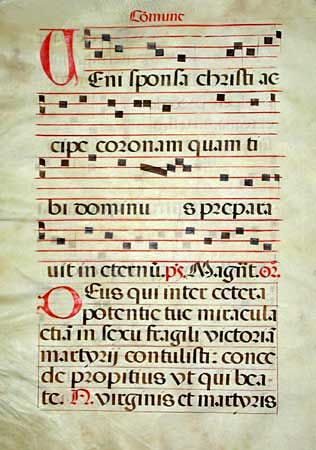 Comune
Veni sponsa christi ac
cipe coronam quam ti
bi dominu s prepara
uit in eternũ. ps. Magñt. Or.
Deus qui inter cetera
potentie tue miracula
etiã in sexu fragili victoriã
martyrij contulisti: conce
de propitius vt qui bea
te. N. virginis et martyris